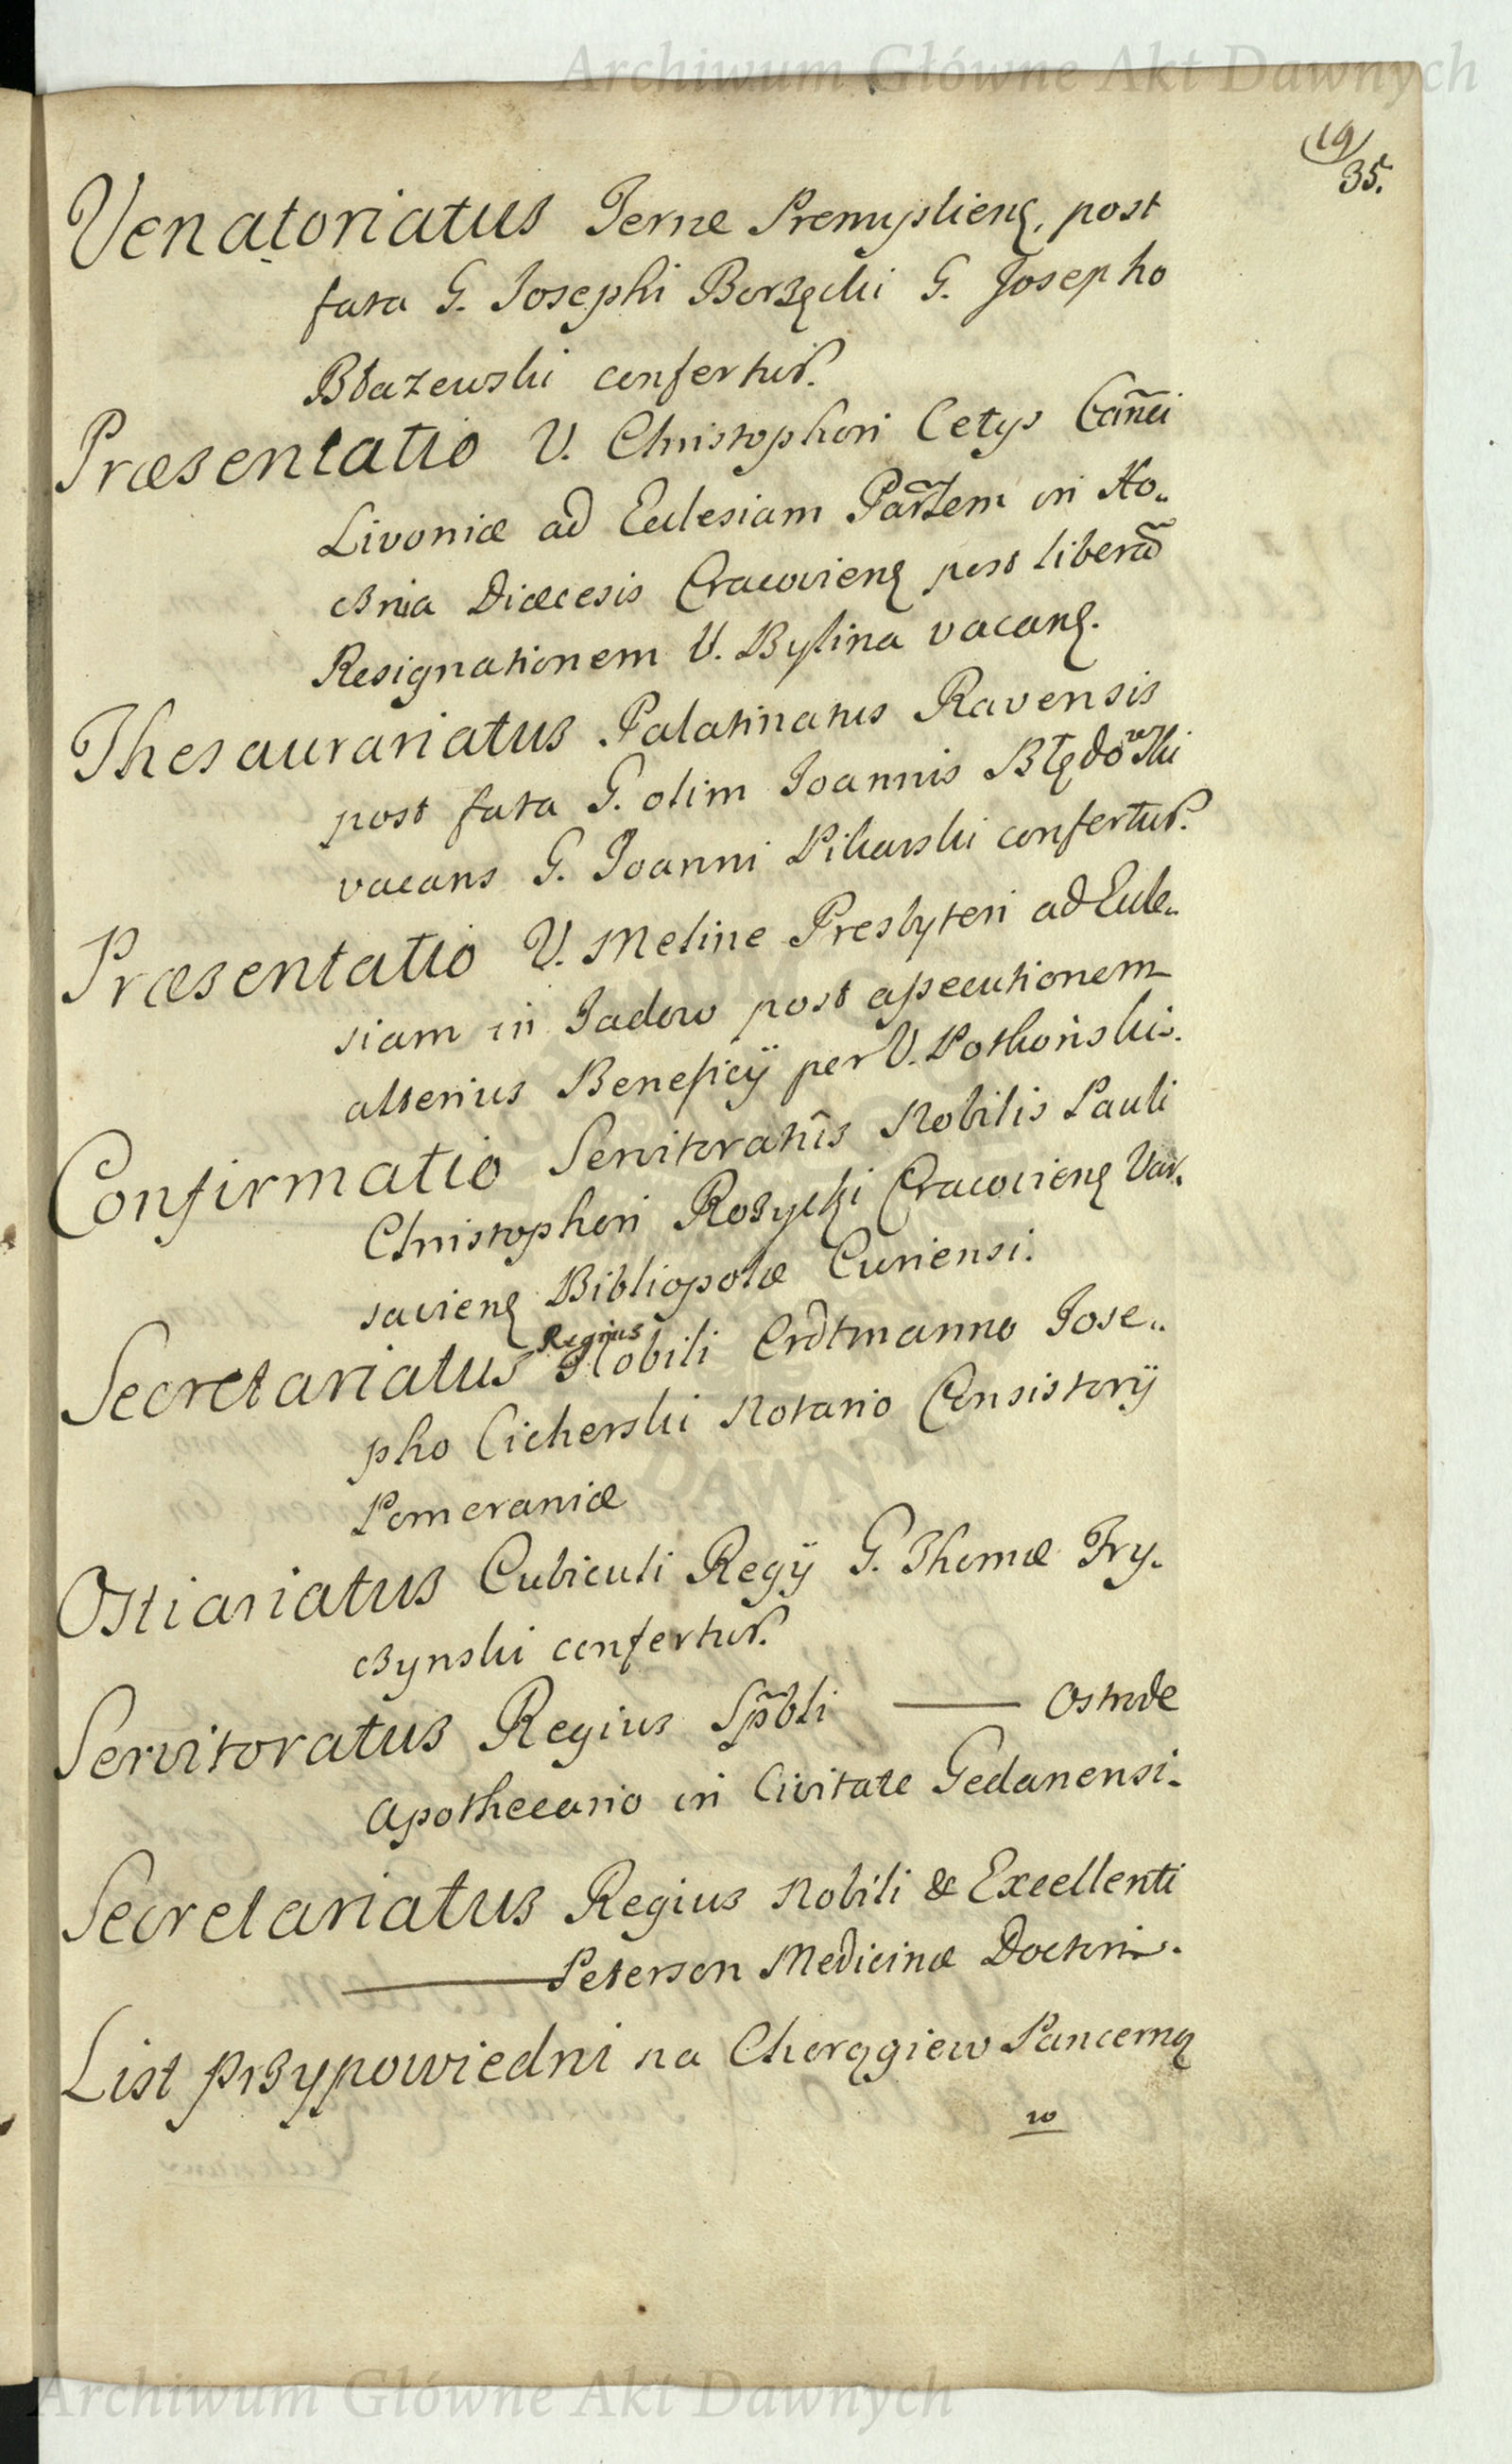 Archiwum Główne Akt Dawnych
19
35.
Venatoriatus Terræ Premyslienȩ, post
fata G. Iosephi Borzęcki G. Josepho
Błazewski confertur.
Præsentatio V. Christophori Cetys Cañci
Livoniæ ad Ecclesiam Par̃lem in Ko„
cznia Diæcesis Cracovienȩ post liberã
Resignationem V. Bylina vacanȩ.
Thesaurariatus Palatinatus Ravensis
post fata G. olim Joannis Błędowski
vacans G. Joanni Pikarski confertur.
Præsentatio V. Meline Presbyteri ad Eccle„
siam in Jadow post assecutionem
alterius Beneficÿ per V. Potkoński.
Confirmatio Servitoratûs Nobilis Pauli
Christophori Rozycki Cracovienȩ Var„
savienȩ Bibliopolæ Curiensi.
Secretariatus Regius Nobili Erdtmanno Jose„
pho Cicherski Notario Consistorÿ
Pomeraniæ
Ostiariatus Cubiculi Regÿ G. Thomæ Try„
czynski confertur.
Servitoratus Regius Sp̃bli ——— Ostrode
Apothecario in Civitate Gedanensi.
Secretariatus Regius Nobili & Excellenti
——— Peterson Medicinæ Doctori.
List przypowiedni na Chorągiew Pancerną
w
Archiwum Główne Akt Dawnych